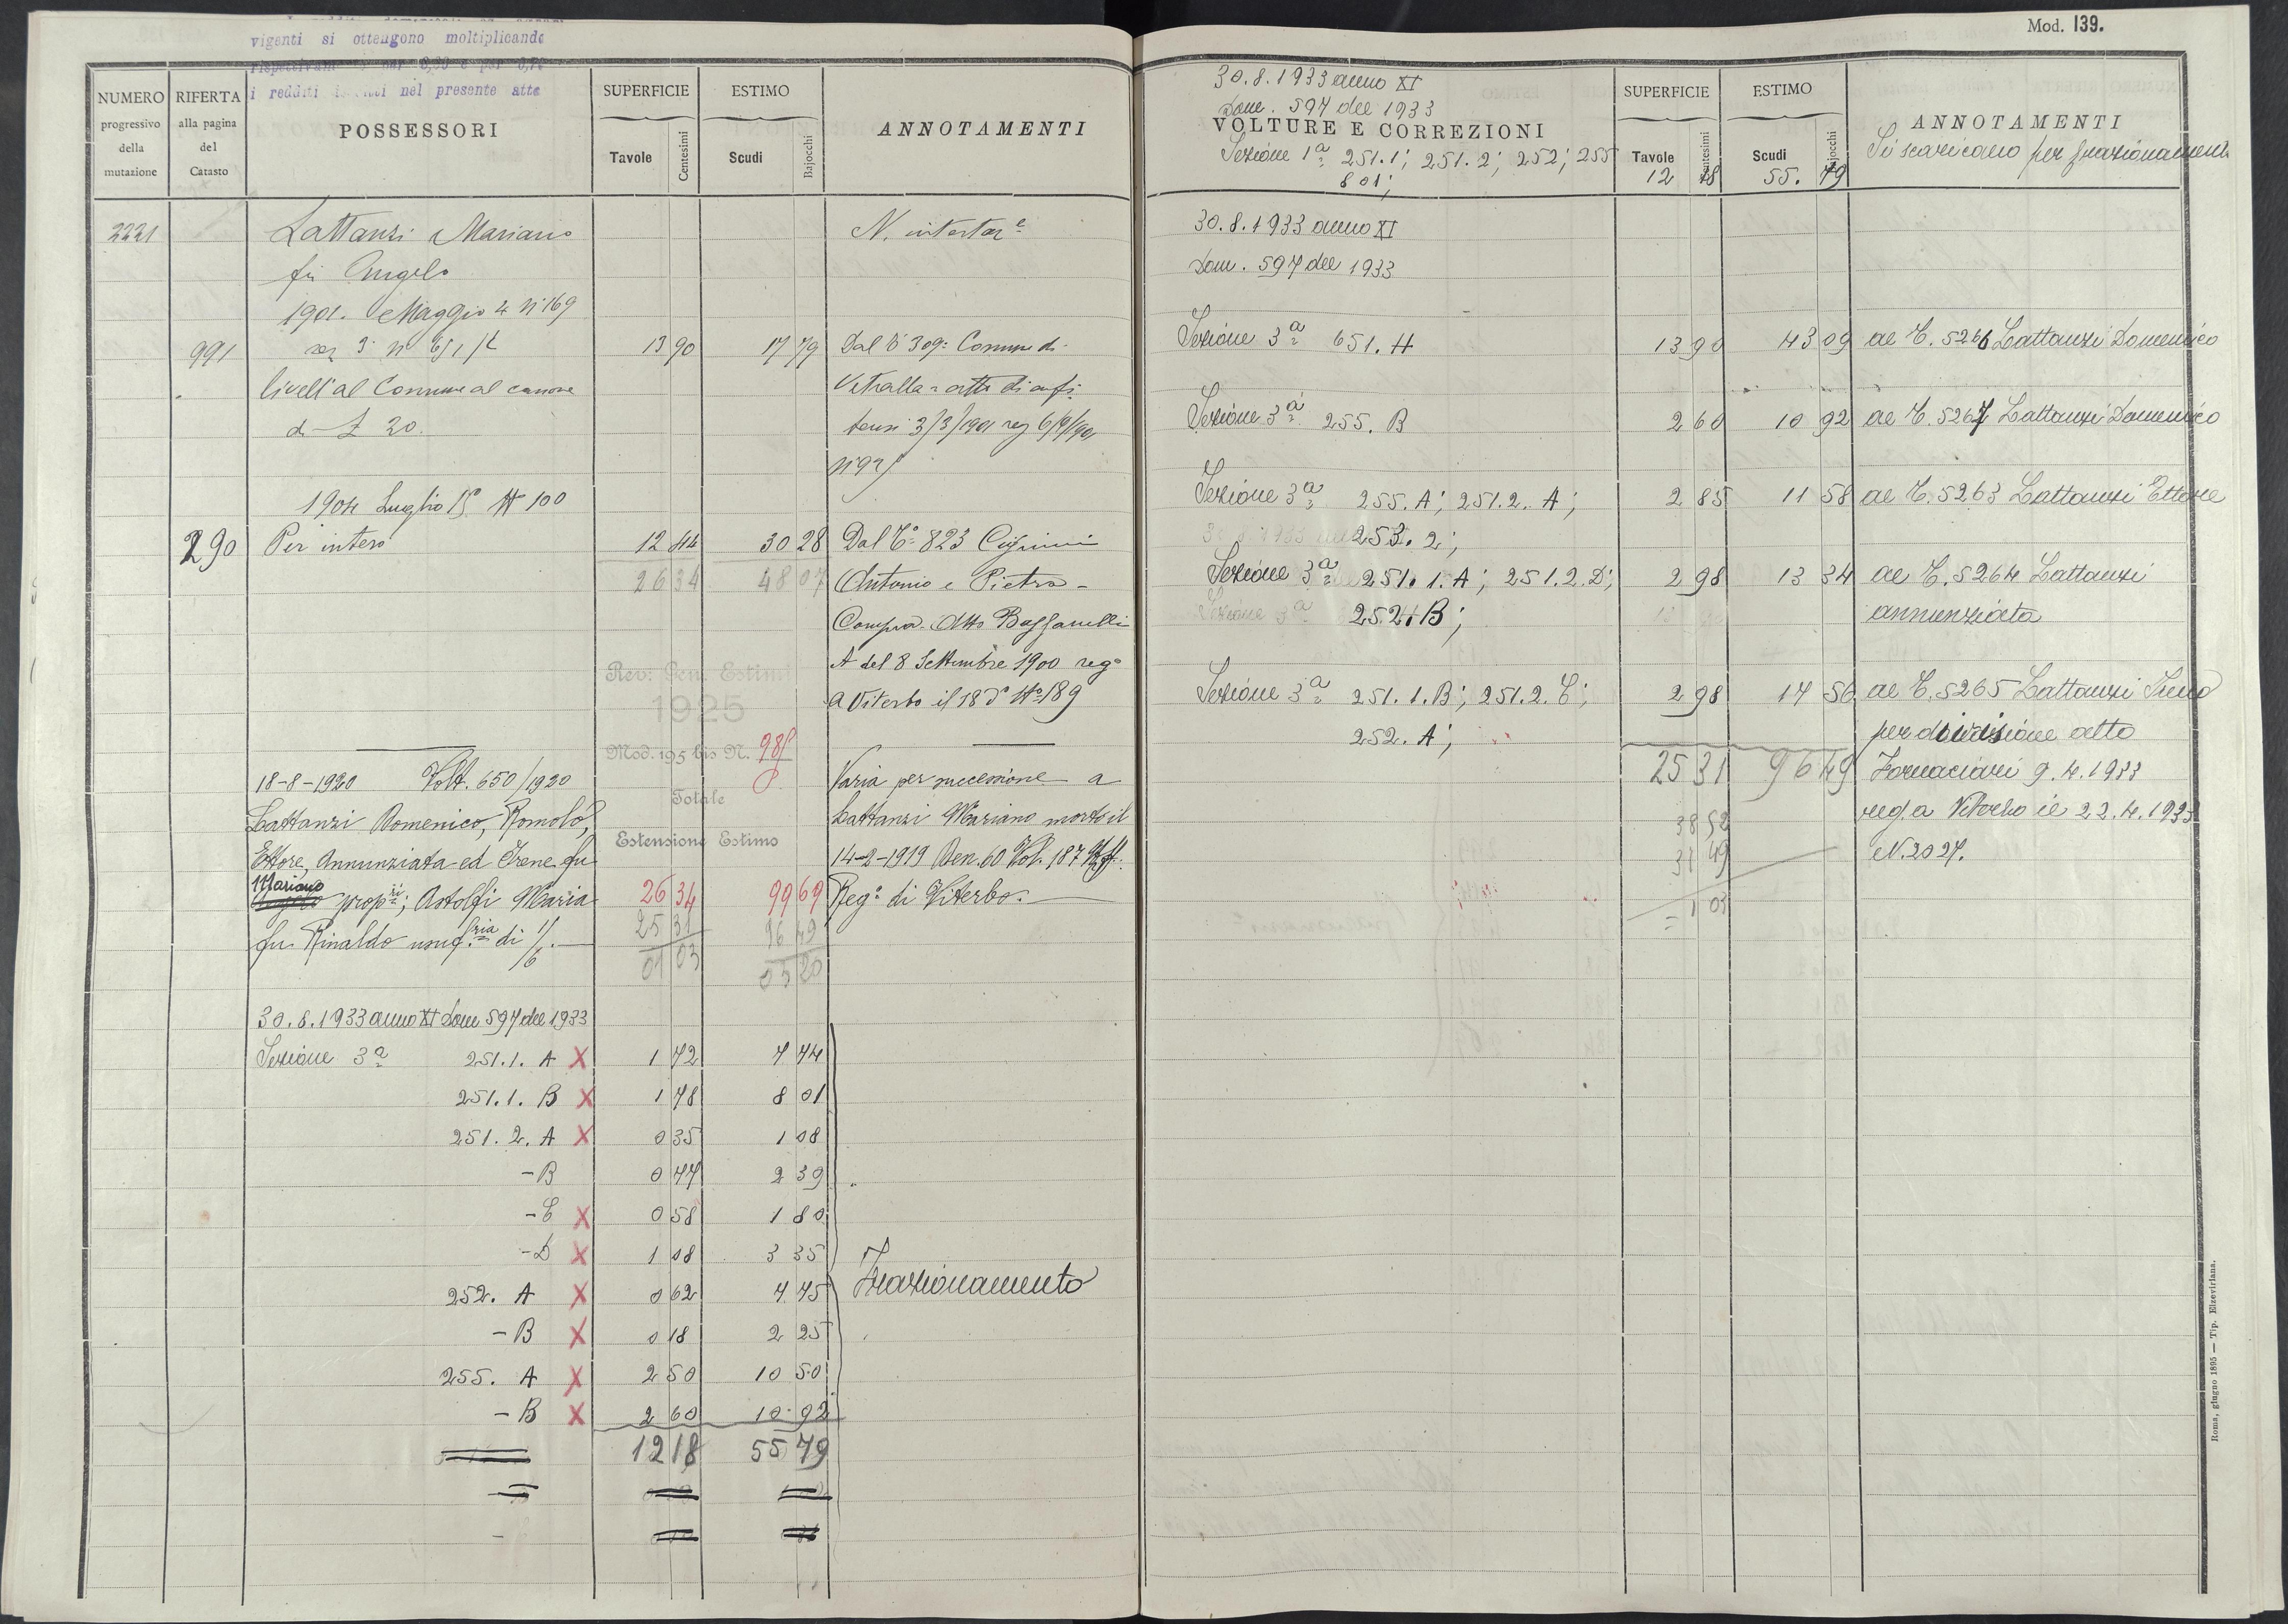 vigenti si ottengono moltiplicando
i redditi nel presente atto
NUMERO progressivo della mutazione
RIFERTA alla pagina del Catasto
POSSESSORI
SUPERFICIE
Tavole Centesimi
ESTIMO
Scudi Bajocchi
ANNOTAMENTI
2221 Lattanzi Mariano N. intestaz e
fu Angelo
1901. Maggio 4 N. 169
991 sez 3a n 651/H 13 90 17 79 Dal C 309 Comune di
livell al Comune al canone Vetralla = atto di enfi
di £ 20. teusi 3/3/1901 reg
1904 Luglio 15 N 100
290 Per intero 12 44 30 28 Dal C° 823 Cignini
26 34 48 07 Antonio e Pietro -
Compra. Atto
A del 8 Settembre 1900 reg°
Rev: Gen. Estimi
1925
a Viterbo il 18 d° N° 189
Mod. 195 bis N. 985
18-8-1920 Volt. 650/1920 Varia per successione a
Totale
Lattanzi Domenico, Romolo, Lattanzi Mariano morto il
Estensione Estimo
Ettore, Annunziata ed Irene fu 14-2-1919 Den. 60 Vol. 187
Mariano propri; Astolfi Maria 26 34 99 69 Reg° di Viterbo.
fu Rinaldo usuf.ria di 1/6. 25 31 96 49
01 03 03 20
30.8.1933 anno XI Dom 597 del 1933
Sezione 3a 251.1. A X 1 72 7 74
251.1. B X 1 78 8 01
251.2. A X 0 35 1 08
- B 0 77 2 39
- C X 0 58 1 80
- D X 1 08 3 35
252. A X 0 62 4 75 Frazionamento
- B X 0 18 2 25
255. A X 2 50 10 50
- B X 2 60 10 92
12 18 55 79
Mod. 139.
30.8.1933 anno XI
Dom. 597 del 1933
VOLTURE E CORREZIONI
Sezione 1a 251.1; 251.2; 252; 255
801;
SUPERFICIE
Tavole Centesimi
12 18
ESTIMO
Scudi Bajocchi
55. 79
ANNOTAMENTI
Si scaricano per frazionamento
30.8.1933 anno XI
Dom. 597 del 1933
Sezione 3a 651. H 13 90 43 09 al C. 5266 Lattanzi Domenico
Sezione 3a 255. B 2 60 10 92 al C. 5267 Lattanzi Domenico
Sezione 3a 255. A; 251.2. A; 2 85 11 58 al C. 5263 Lattanzi Ettore
253. 2;
Sezione 3a 251. 1. A; 251.2. D; 2 98 13 34 al C. 5264 Lattanzi
252. B; annunziata
Sezione 3a 251. 1. B; 251.2. C; 2 98 14 56 al C. 5265 Lattanzi Irene
252. A; per divisione atto
25 31 96 49 Fornaciari 9.4.1933
38 52 reg. a Viterbo il 22.4.1933
37 49 N. 2027.
= 1 03
Roma, giugno 1895 — Tip. Elzeviriana.